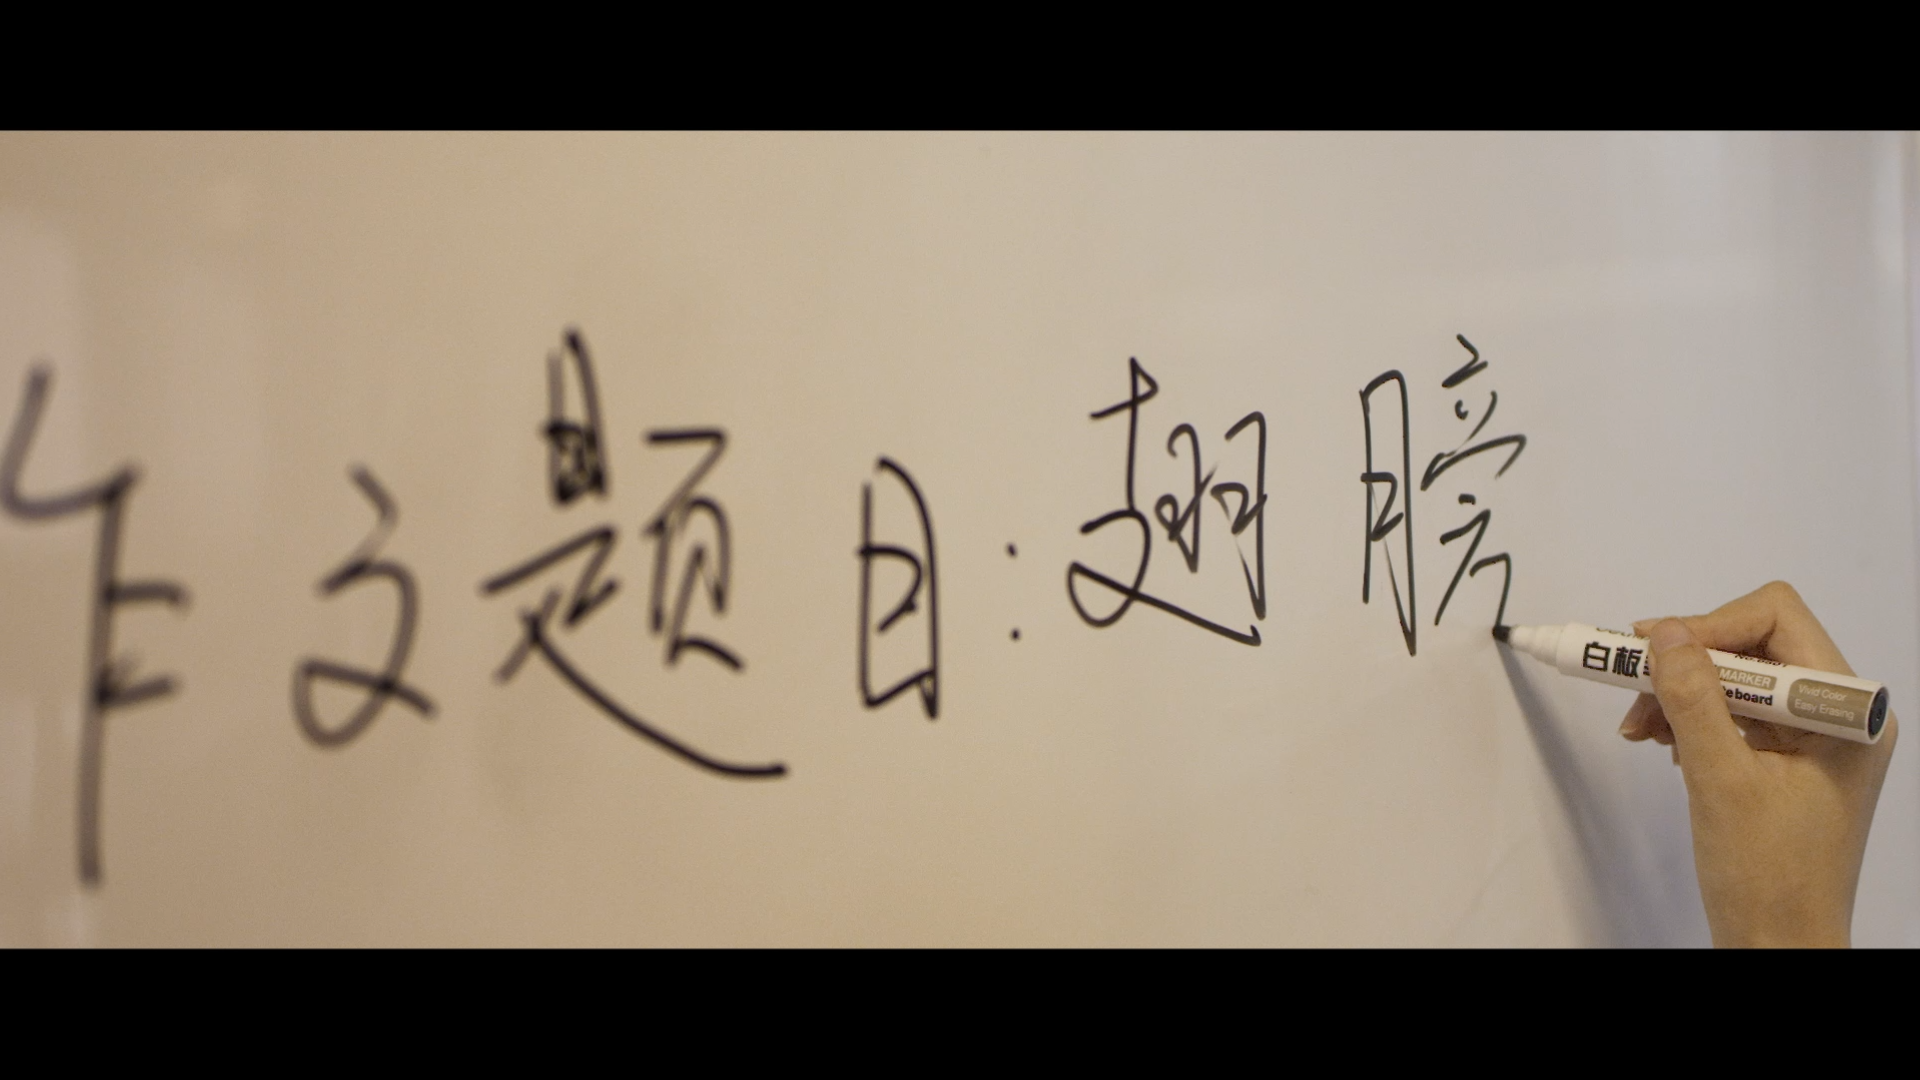 作文题目:翅膀
白板
MARKER
eboard
Vivid Color
Easy Erasing